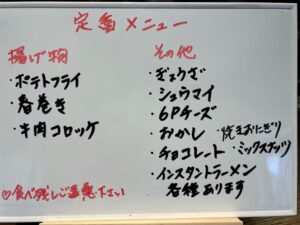 定番メニュー
揚げ物
・ポテトフライ
・春巻き
・牛肉コロッケ
その他
・ぎょうざ
・シュウマイ
・6Pチーズ
・おかし ・焼きおにぎり
・チョコレート ・ミックスナッツ
・インスタントラーメン
各種あります
♡食べ残しご遠慮下さい